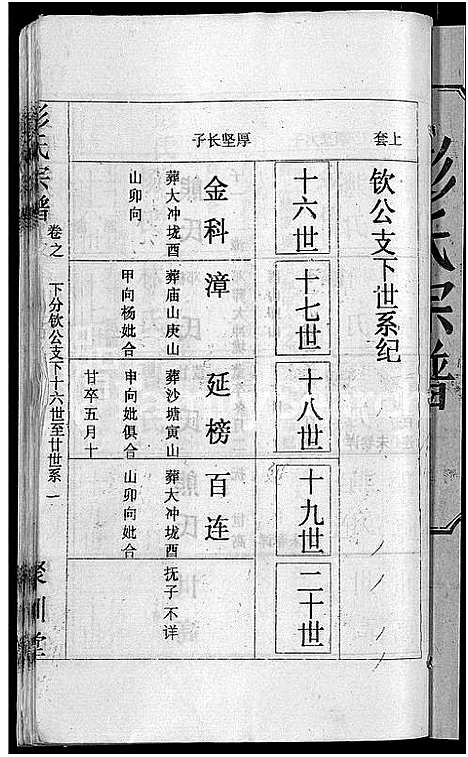 彭氏宗譜
上套
钦公支下世系纪
十六世
十七世
十八世
十九世
二十世
厚坚长子
金科漳
延榜百连
葬大冲垅酉
山卯向
葬庙山庚山
甲向杨妣合
葬沙塘寅山
申向妣俱合
甘卒五月十
葬大冲垅酉
山卯向妣合
抚子不详
彭氏宗譜
卷之
下分钦公支下十六世至廿世系 一